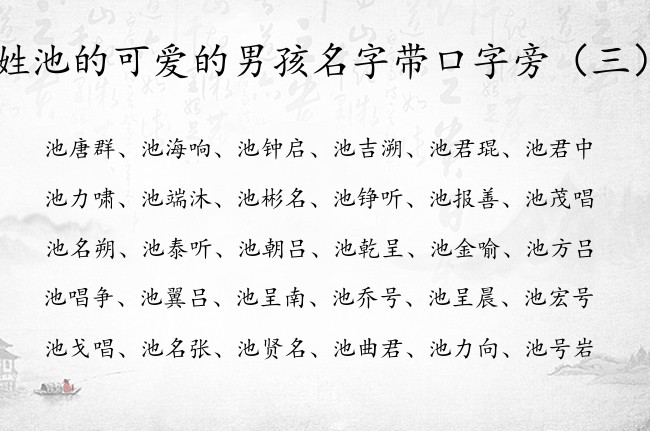 姓池的可爱的男孩名字带口字旁（三）
池唐群、池海响、池钟启、池吉溯、池君琨、池君中
池力啸、池端沐、池彬名、池铮听、池报善、池茂唱
池名朔、池泰听、池朝吕、池乾呈、池金喻、池方吕
池唱争、池翼吕、池呈南、池乔号、池呈晨、池宏号
池戈唱、池名张、池贤名、池曲君、池力向、池号岩